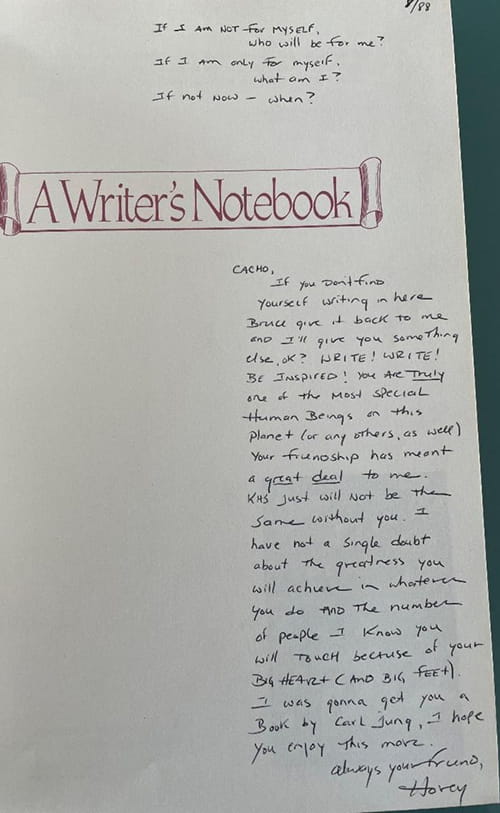 8/88
If I AM NOT for MYSELF,
who will be for me?
If I am only for myself,
what am I?
If not NOW — when?
A Writer's Notebook
CACHO,
If you Don't find
yourself writing in here
Bruce give it back to me
AND I'll give you something
else, ok? WRITE! WRITE!
BE INSPIRED! You Are Truly
one of the Most Special
Human Beings on this
Planet (or any others, as well)
Your friendship has meant
a great deal to me.
KHS just will Not be the
same without you. I
have not a single doubt
about the greatness you
will achieve in whatever
you do AND The number
of people I know you
will TOUCH because of your
BIG HEART (AND BIG FEET).
I was gonna get you a
Book by Carl Jung, I hope
you enjoy this more.
always your friend,